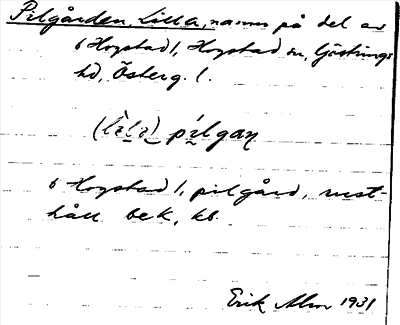 Pilgården, Lilla, namn på del av
6 Hogstad 1, Hogstad sn, Göstrings
hd, Österg. l.
pilgaṇ
6 Hogstad 1, pilgård, rust-
håll bek, kb.
Erik Alm 1931